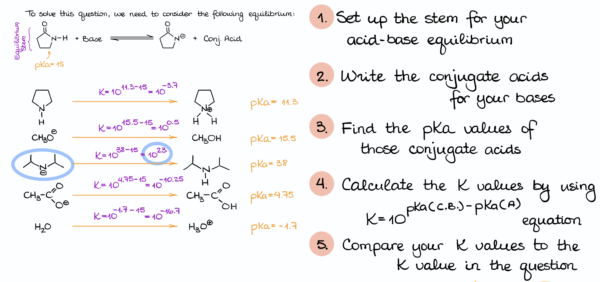 To solve this question, we need to consider the following equilibrium:
Equilibrium Stem
O
N-H + Base
O
N⊖ + Conj Acid
pKa=15
N
H
K=10^11.3-15=10^-3.7
N⊕
H H
pKa= 11.3
CH₃O⊖
K=10^15.5-15=10^0.5
CH₃OH
pKa= 15.5
N⊖
K=10^38-15=10^23
N
H
pKa= 38
CH₃-C
O
O⊖
K=10^4.75-15=10^-10.25
CH₃-C
O
OH
pKa=4.75
H₂O
K=10^-1.7-15=10^-16.7
H₃O⊕
pKa=-1.7
1. Set up the stem for your
acid-base equilibrium
2. Write the conjugate acids
for your bases
3. Find the pKa values of
those conjugate acids
4. Calculate the K values by using
K=10^pKa(C.B.)-pKa(A) equation
5. Compare your K values to the
K value in the question